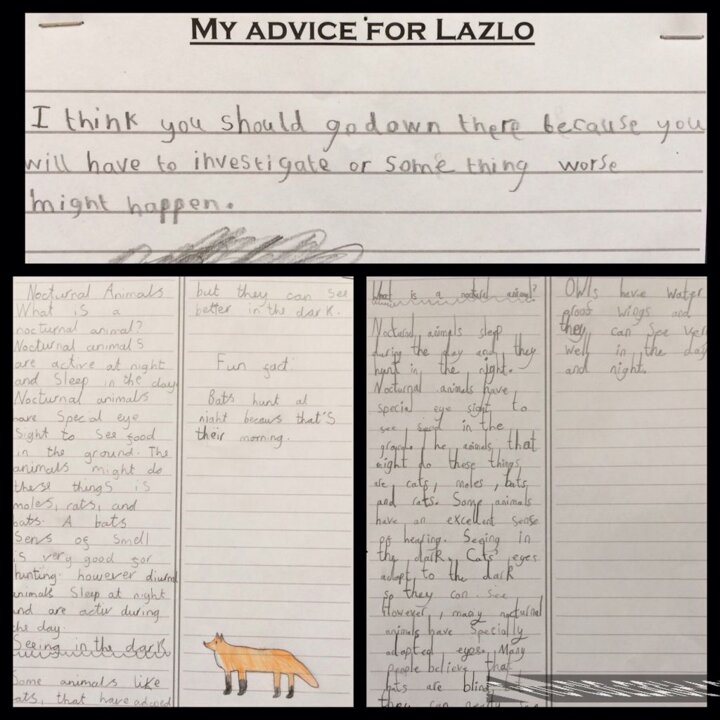 MY ADVICE FOR LAZLO
I think you should go down there because you
will have to investigate or some thing worse
might happen.
Nocturnal Animals
What is a
nocturnal animal?
Nocturnal animals
are active at night
and Sleep in the day
Nocturnal animals
have Specal eye
Sight to See food
in the ground. The
animals might do
these things is
moles, rats, and
bats. A bats
Sens of Smell
is very good for
hunting. however diurnal
animals Sleep at night
and are activ during
the day.
Seeing in the dark
Some animals like
cats, that have adapted
but they can See
better in the dark.
Fun fact:
Bats hunt at
night becaus that's
their morning.
What is a noctural animal?
Nocturnal animals sleep
during the day and they
hunt in the night.
Nocturnal animals have
special eye sight to
see food in the
ground. The animals that
might do these things
are cats, moles, bats
and rats. Some animals
have an excellent sense
of hearing. Seeing in
the dark. Cats' eyes
adapt to the dark
so they can see.
However, many nocturnal
animals have Specially
adapted eyes. Many
people believe that
bats are blind
they can really see
Owls have water
proof wings and
they can see very
well in the day
and night.